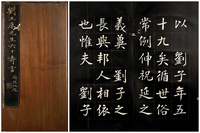 以 劉子年五
十九矣循世俗
常例伸祝延之
義冀 劉子之
長與邦人相依
也惟夫 劉子
先生六十壽言